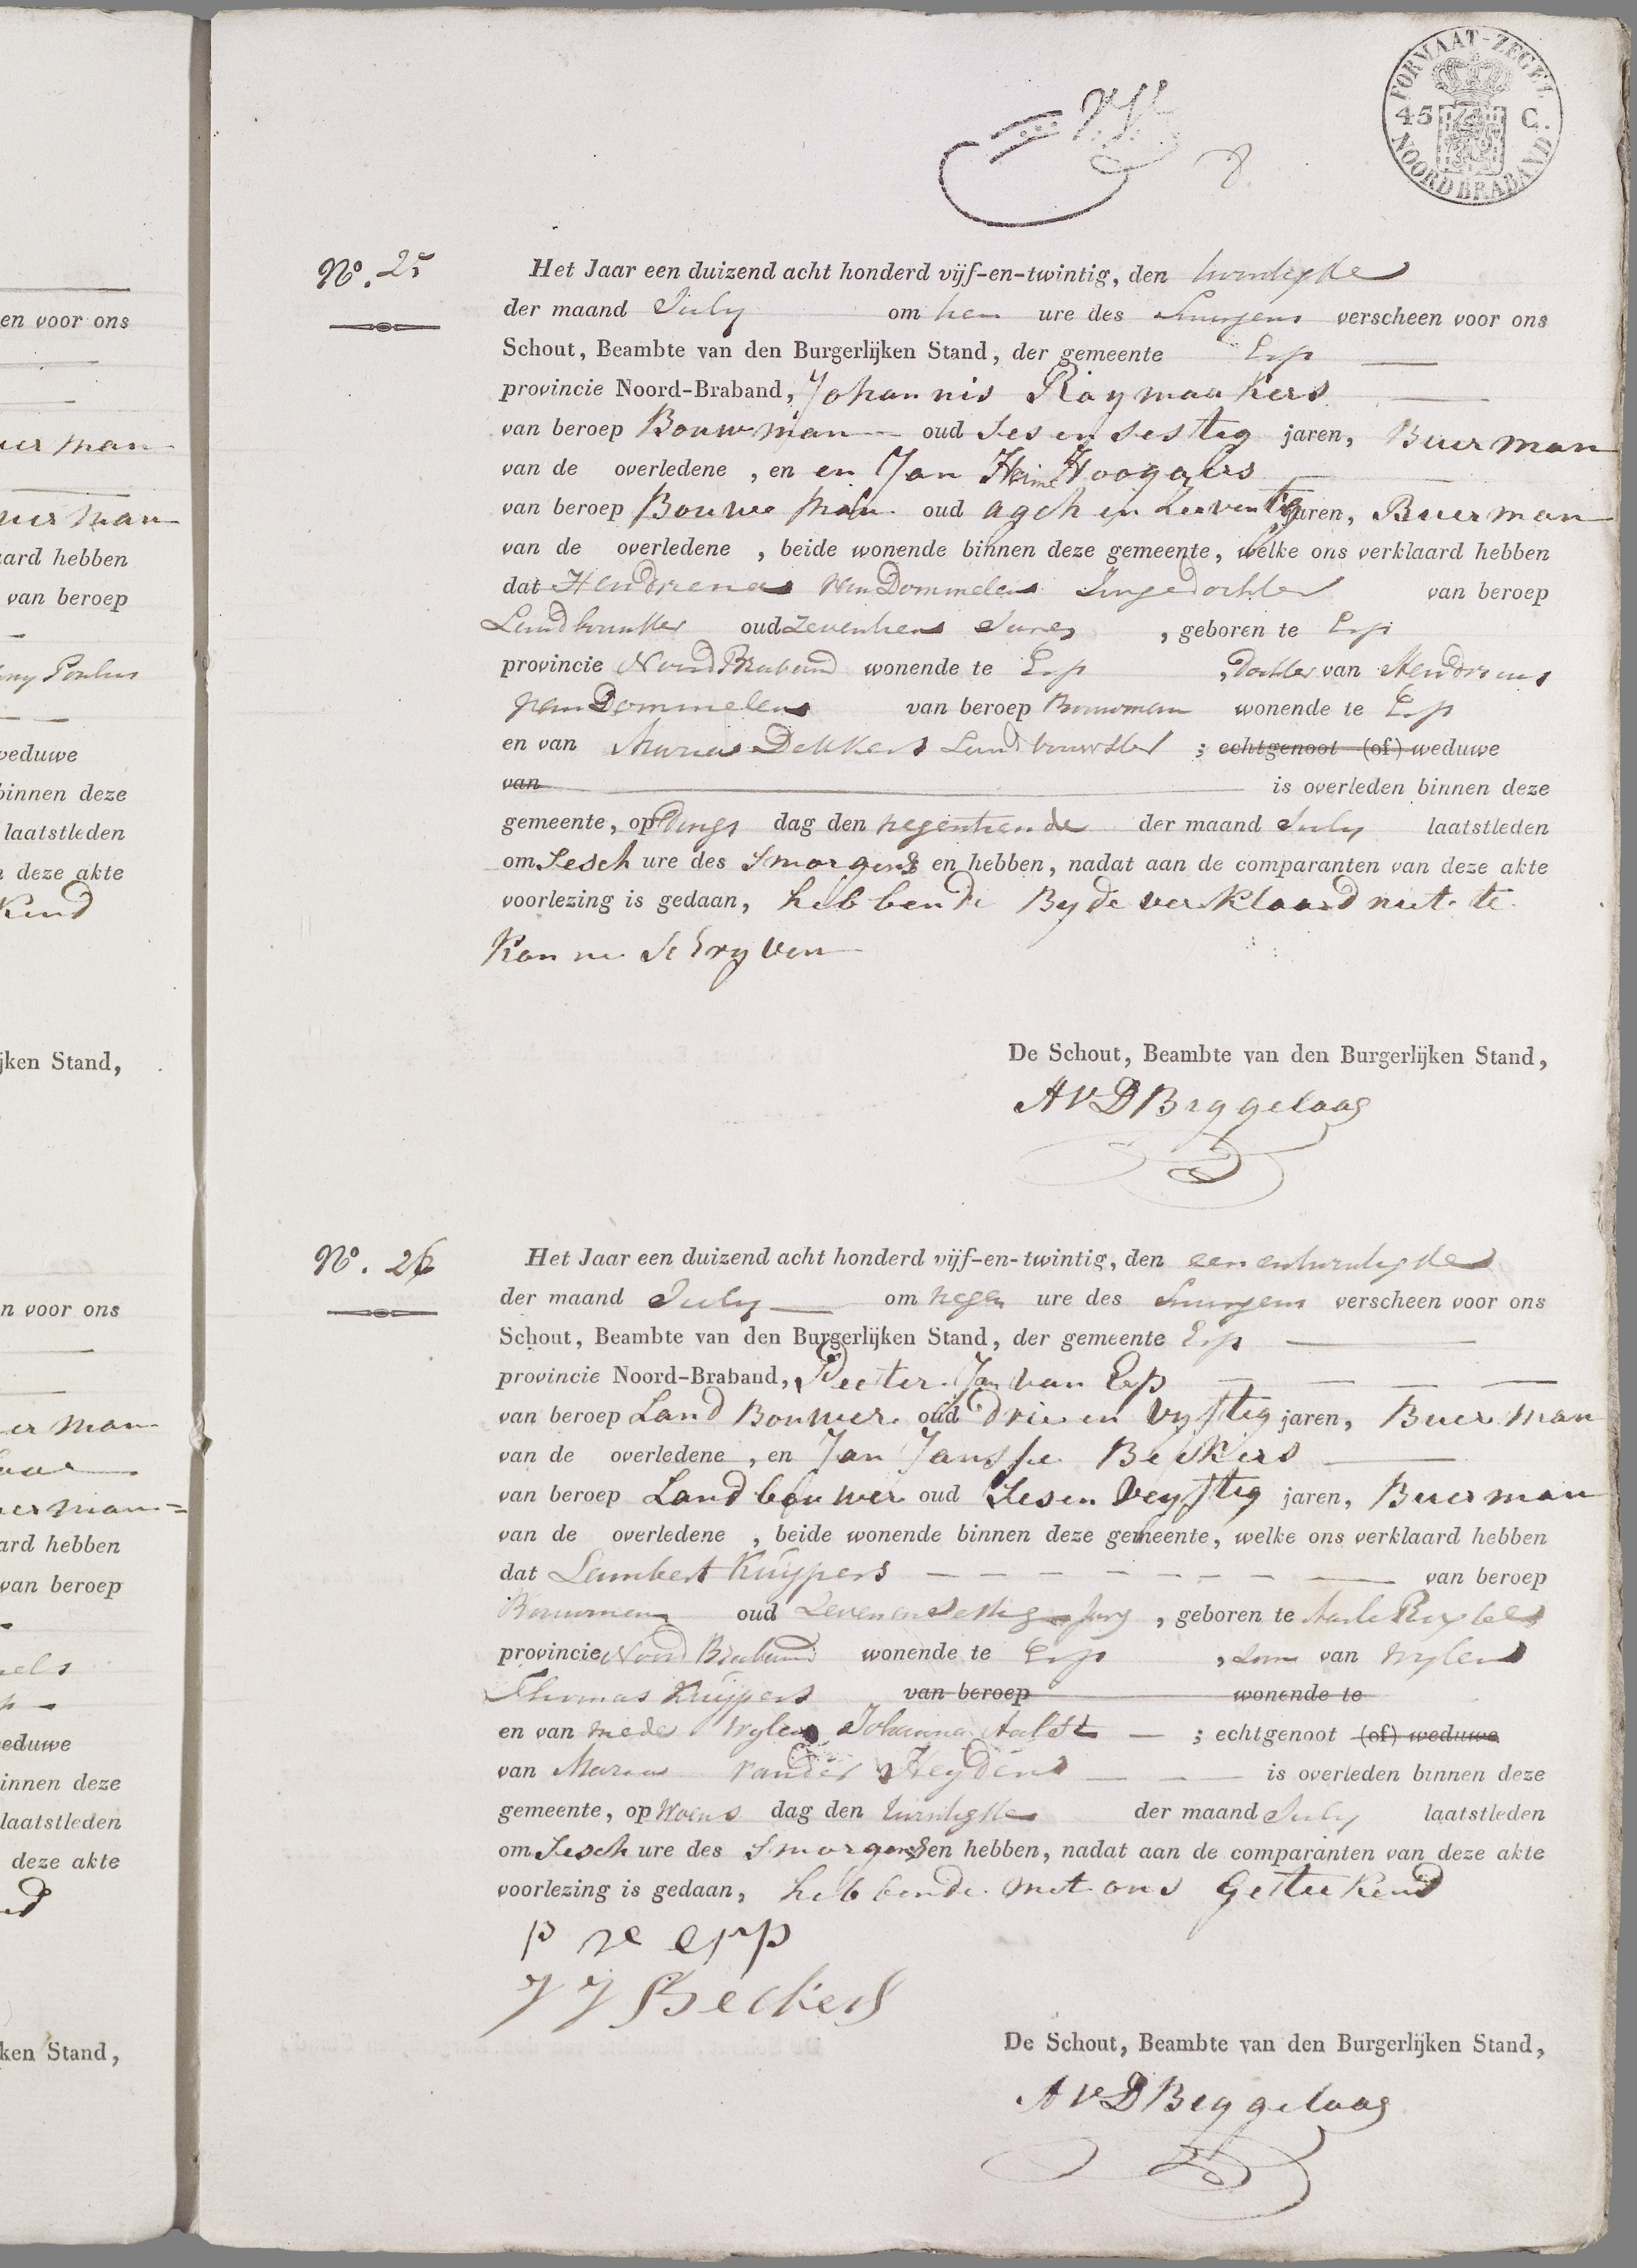 en voor ons
uer man
uer man
aard hebben
van beroep
veduwe
binnen deze
laatstleden
n deze akte
kend
ijken Stand,
n voor ons
er man
uer man =
ard hebben
van beroep
eduwe
innen deze
laatstleden
deze akte
nd
ken Stand,
FORMAAT-ZEGEL
45 C.
NOORDBRABAND
8.
No. 25
Het Jaar een duizend acht honderd vijf-en-twintig, den twintigste
der maand July om tien ure des Smorgens verscheen voor ons
Schout, Beambte van den Burgerlijken Stand, der gemeente Erp
provincie Noord-Braband, Johannis Raymaakers
van beroep Bouwman oud Ses en Sestig jaren, Buerman
van de overledene , en en Jan Hoogaers
van beroep Bouwe man oud agch en Zeventig jaren, Buerman
van de overledene , beide wonende binnen deze gemeente, welke ons verklaard hebben
dat Hendriena van Dommelen Jongedochter van beroep
Landbouwster oud Zeventien Jaren , geboren te Erp
provincie Noord Braband wonende te Erp , Dochter van Hendricus
van Dommelen van beroep Bouwman wonende te Erp
en van Maria Dekkers Landbouwster ; echtgenoot (of) weduwe
van is overleden binnen deze
gemeente, op Dings dag den negentiende der maand July laatstleden
om Sesch ure des Smorgens en hebben, nadat aan de comparanten van deze akte
voorlezing is gedaan, hebbende Byde verklaard niet te
Kanne Schryven
De Schout, Beambte van den Burgerlijken Stand,
AVD Biggelaag
No. 26
Het Jaar een duizend acht honderd vijf-en-twintig, den eenentwintigste
der maand July om negen ure des Smorgens verscheen voor ons
Schout, Beambte van den Burgerlijken Stand, der gemeente Erp
provincie Noord-Braband, Peeter Jan van Erp
van beroep Land Bouwer oud Drie en vyftig jaren, Buerman
van de overledene , en Jan Jansse Beckers
van beroep Landbouwer oud Sesen veyftig jaren, Buerman
van de overledene , beide wonende binnen deze gemeente, welke ons verklaard hebben
dat Lambert Kuypers van beroep
Bouwman oud Zevenensestig Jaren , geboren te Aarle Rixtel
provincie Noord Braband wonende te Erp , Zoon van wylen
Thomas Kuypers van beroep wonende te
en van mede wylen Johanna Aalst ; echtgenoot (of) weduwe
van Maria van der Heyden is overleden binnen deze
gemeente, op Woens dag den twintigste der maand July laatstleden
om Sesch ure des Smorgens en hebben, nadat aan de comparanten van deze akte
voorlezing is gedaan, hebbende met ons Getteekend
p ve erp
JJ Beckers
De Schout, Beambte van den Burgerlijken Stand,
AVD Biggelaag